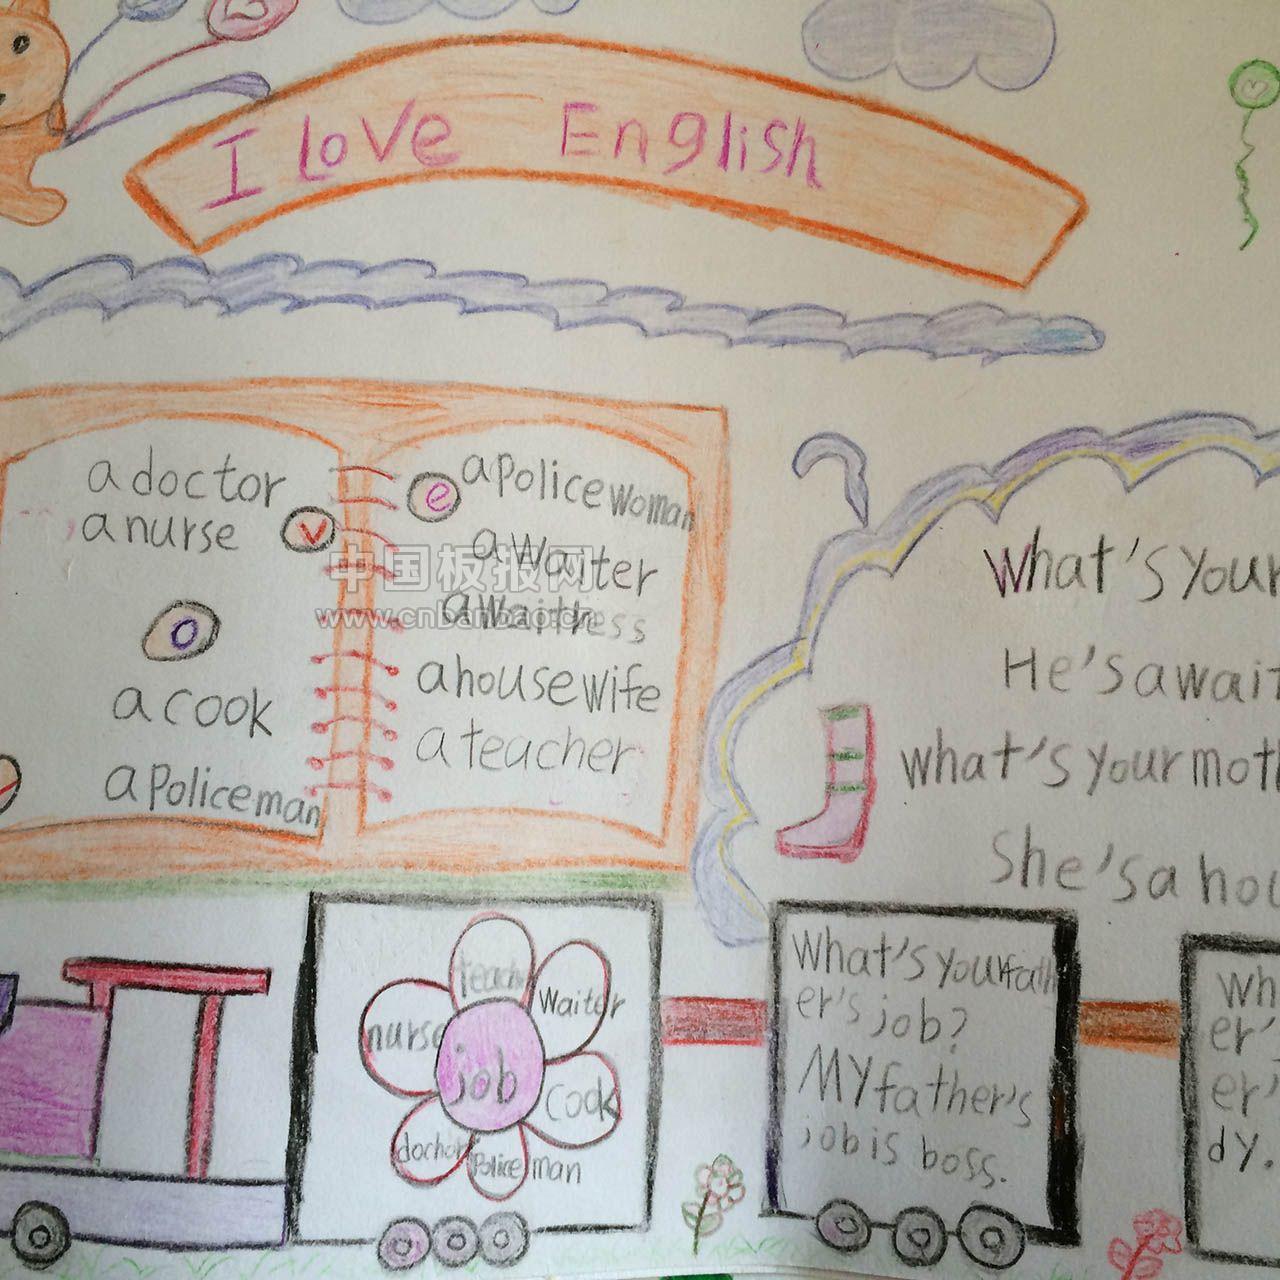 I Love English
a doctor
a nurse
v
o
a cook
a Policeman
e
a Policewoman
a Waiter
a Waitress
a housewife
a teacher
中国板报网
www.cnbanbao.cn
What's your
He's a wait
what's your moth
She's a hou
teach
Waiter
nurse
job
Cook
dochor
Police man
What's your fath
er's job?
MY father's
job is boss.
Wh
er'
er'
dy.